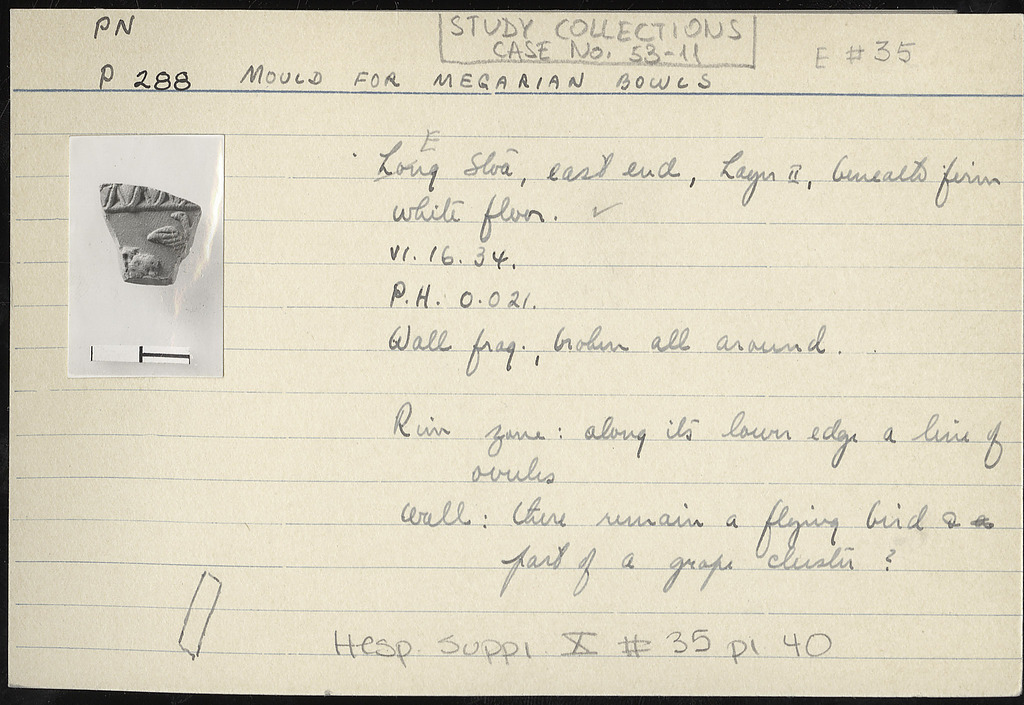 PN
STUDY COLLECTIONS
CASE No. 53-11
E # 35
P 288 MOULD FOR MEGARIAN BOWLS
E
Long Stoa, east end, Layer II, beneath firm
white floor. ✓
VI. 16. 34.
P.H. 0.021.
Wall frag., broken all around.
Rim zone: along its lower edge a line of
ovules
Wall: there remain a flying bird &
part of a grape cluster?
Hesp. Suppl. X # 35 pl 40